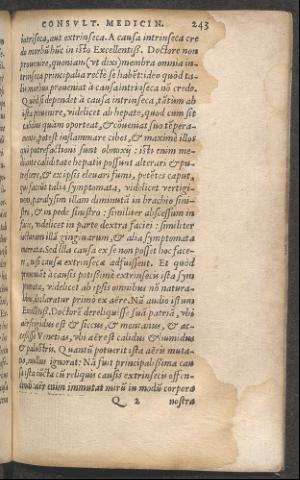 CONSVLT. MEDICIN. 243
intrinseca, aut extrinseca. A causa intrinseca cre
do morbũ hũc in isto Excellentiß. Doctore non
prouenire, quoniam (vt dixi) membra omnia in-
trinseca principalia rectè se habẽt: ideo quòd ta-
lis morbus proueniat à causa intrinseca nõ credo.
à causa intrinseca, tãtùm ab
ista prouenire, videlicet ab hepate, quod cum sit
oporteat, & cõueniat suo tẽpera-
potest inflammare cibos, & maximè illos
qui putrefactioni sunt obnoxij: isto enim me-
caliditate hepatis possunt alterari & pu-
& ex ipsis eleuari fumi, petẽtes caput,
qui faciũt talia symptomata, videlicet vertigi-
nem, paralysim illam diminutã in brachio sini-
stro, & in pede sinistro: similiter abscessum in
videlicet in parte dextra faciei: similiter
illã gingiuarum, & alia symptomata
Sed illa causa ex se non posset hoc face-
re, nisi causæ extrinsecæ adfuissent. Et quòd
à causis potissimè extrinsecis ista sym
videlicet ab ipsis omnibus nõ natura-
libus, declaratur primò ex aëre. Nã audio istum
Excellentiß. Doctorẽ dereliquisse suã patriã, vbi
aër frigidus est & siccus, & montanus, & ac-
cessisse Venetias, vbi aër est calidus & humidus
& palustris. Quantũ potuerit ista aëris muta-
tio, nullus ignorat: Nã fuit principalissima cau
sa ista iũcta cũ reliquis causis extrinsecis offen-
aër enim immutat mirũ in modũ corpora
Q 2 nostra